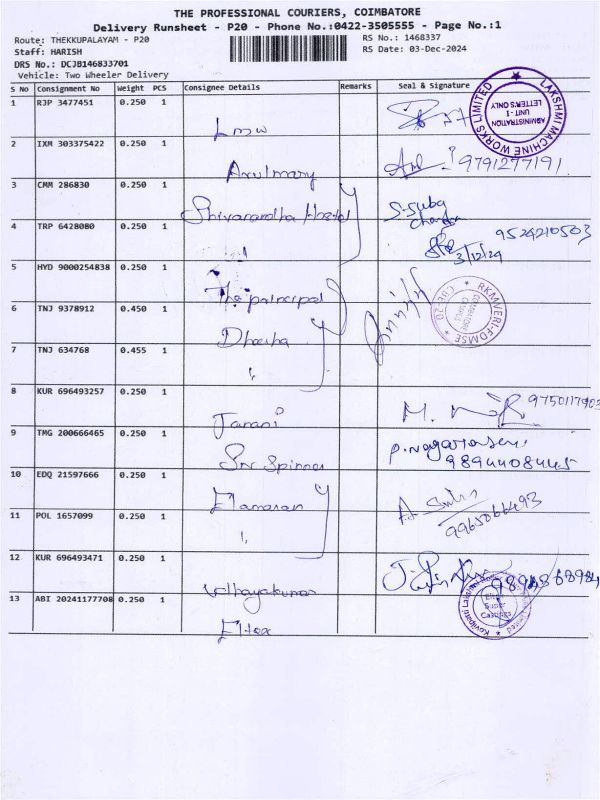 THE PROFESSIONAL COURIERS, COIMBATORE
Delivery Runsheet - P20 - Phone No.:0422-3505555 - Page No.:1
Route: THEKKUPALAYAM - P20
RS No.: 1468337
Staff: HARISH
RS Date: 03-Dec-2024
DRS No.: DCJB146833701
Vehicle: Two Wheeler Delivery
S No Consignment No Weight PCS Consignee Details Remarks Seal & Signature
1 RJP 3477451 0.250 1 Lmw
LAKSHMI MACHINE WORKS LIMITED
ADMINISTRATION
UNIT-I
LETTERS ONLY
2 IXM 303375422 0.250 1 Arulmary 9791277191
3 CMM 286830 0.250 1 Shivanardha Hostel S.Suba
4 TRP 6428080 0.250 1 " 9524210503
3/12/24
5 HYD 9000254838 0.250 1 The principal
RKMVERI-FDMSE
COIMBATORE
CBE-20
6 TNJ 9378912 0.450 1 Dheeha
7 TNJ 634768 0.455 1 "
8 KUR 696493257 0.250 1 Janani M. 9750117903
9 TMG 200666465 0.250 1 Sri Spinner P. Nagarasan
9894408445
10 EDQ 21597666 0.250 1 Elamaran A.
9965066493
11 POL 1657099 0.250 1 "
12 KUR 696493471 0.250 1 Udhayakumar J.
13 ABI 20241177708 0.250 1 Eltex
Super
Castings